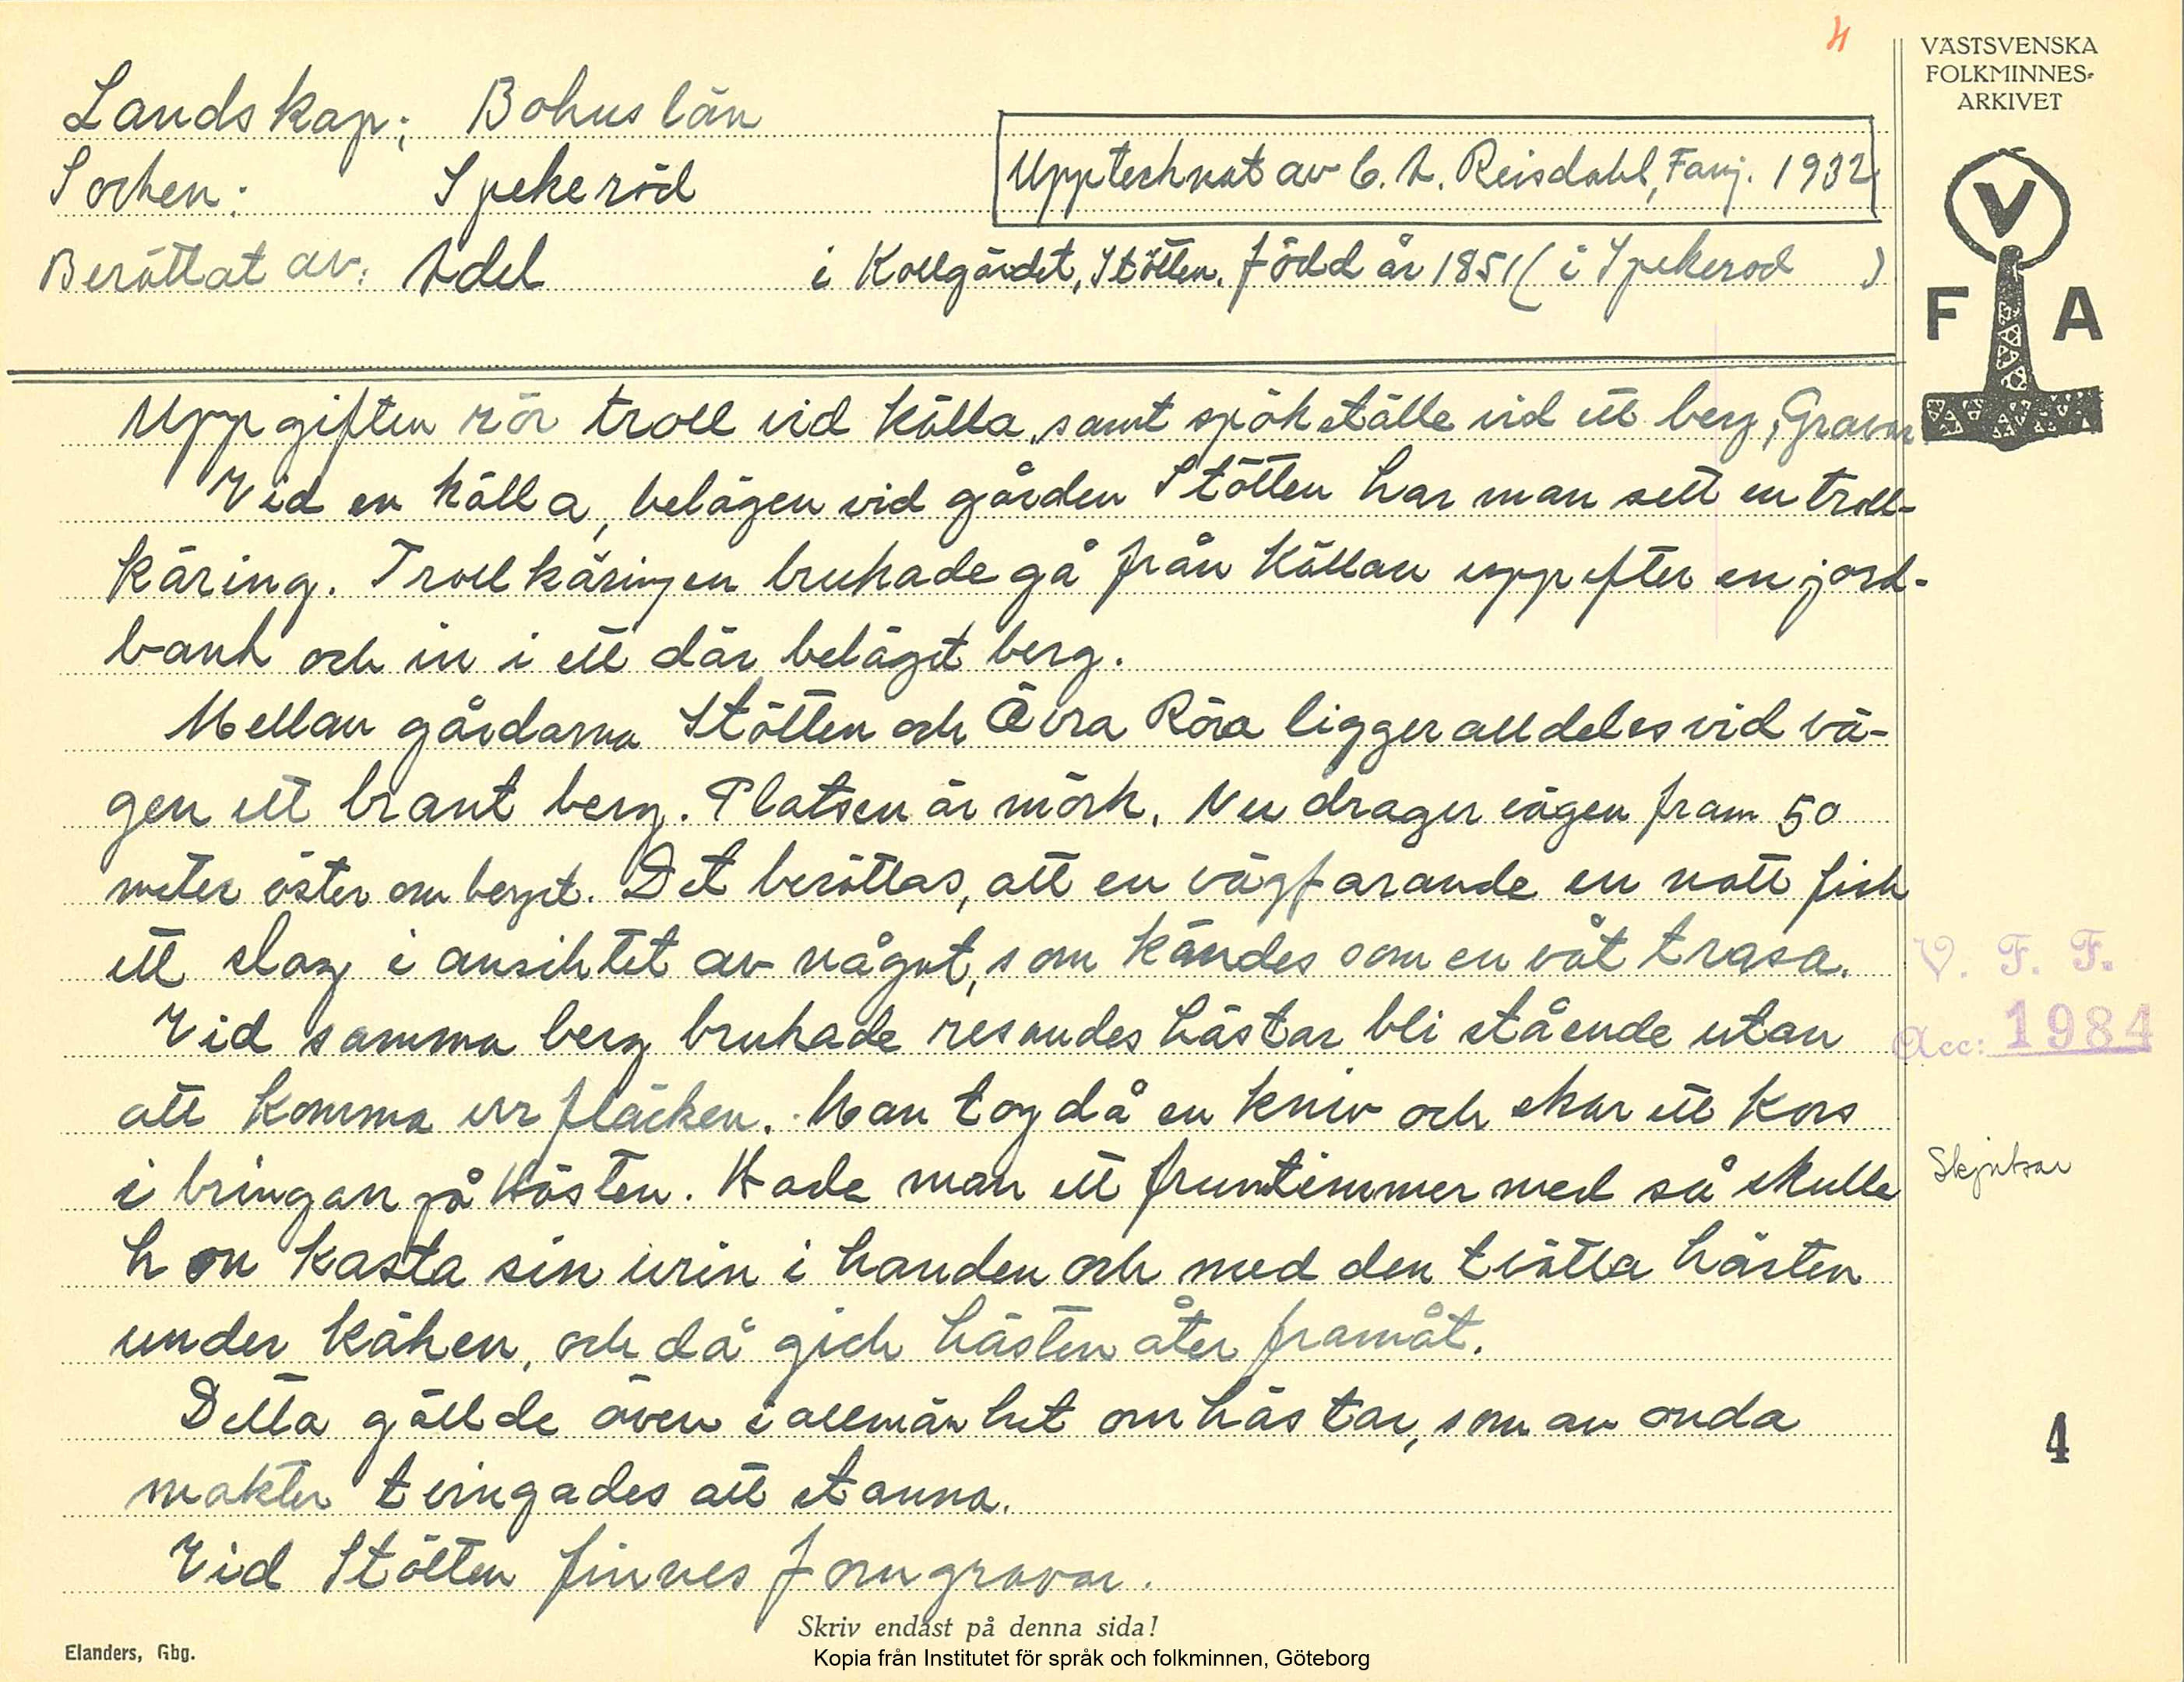 4
VÄSTSVENSKA
FOLKMINNES-
ARKIVET
Landskap: Bohuslän
Upptecknat av C. A. Reisdahl, Fanj. 1932
Socken: Spekeröd
Berättat av: Adel i Kollgärdet, Stötten. Född år 1851 (i Spekeröd)
V
F A
Uppgiften rör troll vid källa, samt spökställe vid ett berg, Gravar
Vid en källa, belägen vid gården Stötten har man sett en troll-
käring. Trollkäringen brukade gå från källan upp efter en jord-
bank och in i ett där beläget berg.
Mellan gårdarna Stötten och Övra Röra ligger alldeles vid vä-
gen ett brant berg. Platsen är mörk. Nu drager vägen fram 50
meter öster om berget. Det berättas, att en vägfarande en natt fick
ett slag i ansiktet av något, som kändes som en våt trasa.
V. F. F.
Vid samma berg brukade resandes hästar bli stående utan
Acc: 1984
att komma ur fläcken. Man tog då en kniv och skar ett kors
i bringan på hästen. Hade man ett fruntimmer med så skulle
Skjutsar
hon kasta sin urin i handen och med den tvätta hästen
under käken, och då gick hästen åter framåt.
Detta gällde även i allmänhet om hästar, som av onda
4
makter tvingades att stanna.
Vid Stötten finnes forngravar.
Skriv endast på denna sida!
Elanders, Gbg.
Kopia från Institutet för språk och folkminnen, Göteborg